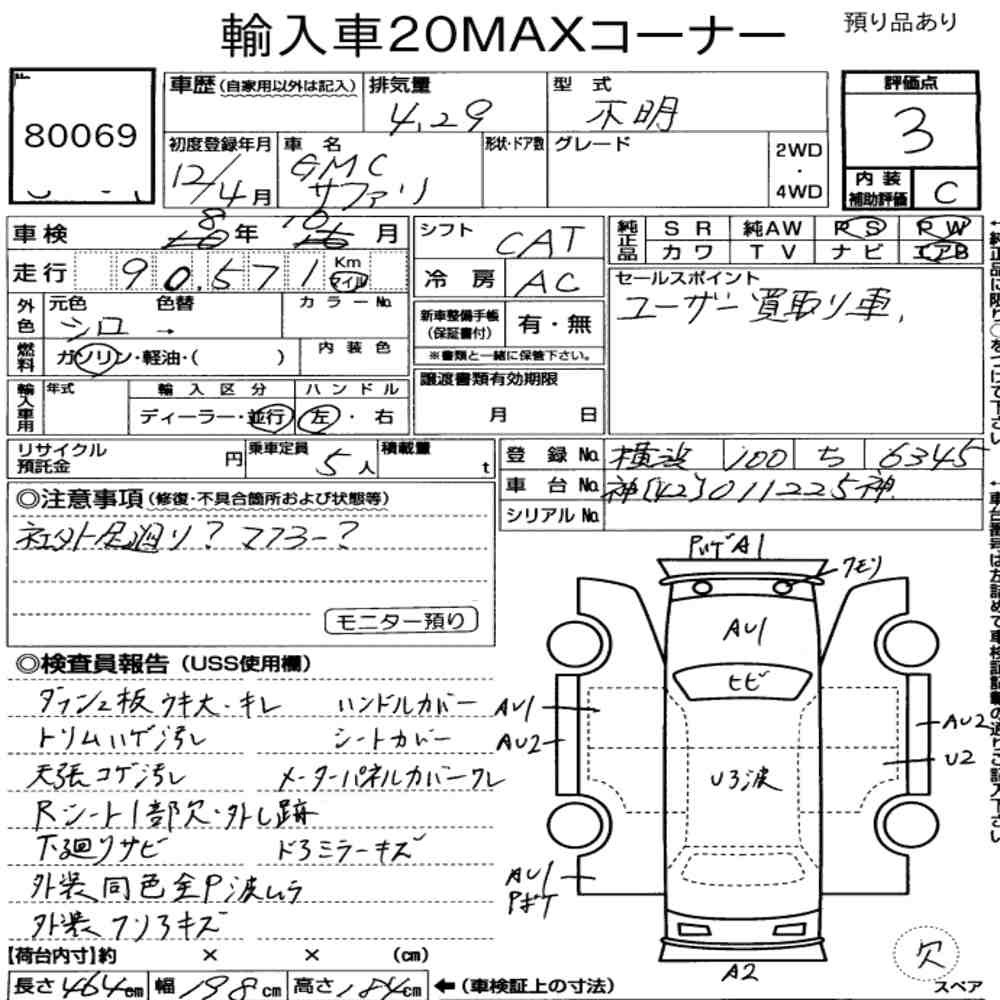 輸入車20MAXコーナー 預り品あり
80069
車歴 (自家用以外は記入) 排気量 4.29 型式 不明
評価点 3
初度登録年月 12/4月 車名 GMC サファリ 形状・ドア数 グレード 2WD・4WD
内装補助評価 C
車検 8年 10月
走行 90.571 Km マイル
シフト CAT
冷房 AC
純正品 SR 純AW PS PW
カワ TV ナビ エアB
外色 元色 シロ 色替 → カラーNo.
燃料 ガソリン・軽油・( ) 内装色
新車整備手帳(保証書付) 有・無
※書類と一緒に保管下さい。
セールスポイント
ユーザー買取り車、
輸入車用 年式 輸入区分 ハンドル
ディーラー・並行 左・右
譲渡書類有効期限
月 日
リサイクル預託金 円 乗車定員 5人 積載量 t
登録No. 横浜 100 ち 6345
車台No. 神[42]011225神
シリアルNo.
◎注意事項 (修復・不具合箇所および状態等)
社外足廻り? マフラー?
モニター預り
◎検査員報告 (USS使用欄)
ダッシュ板ウキ大・キレ ハンドルカバー
トリムハゲ汚レ シートカバー
天張コゲ汚レ メーターパネルカバークレ
Rシート1部欠・外し跡
下廻りサビ ドアミラーキズ
外装同色全P波ムラ
外装スリキズ
【荷台内寸】約 × × (cm)
長さ 464cm 幅 198cm 高さ 184cm ←(車検証上の寸法)
PハゲA1
クモリ
AU1
ヒビ
AU1
AU2
AU2
U2
U3波
AU1
Pボケ
A2
欠
スペア